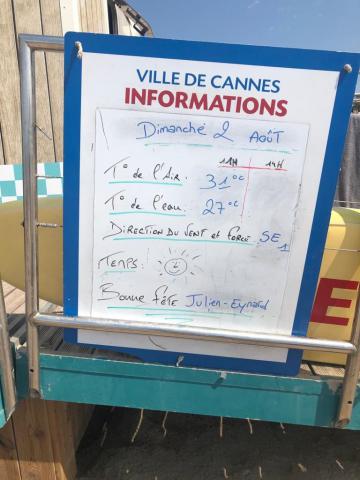 VILLE DE CANNES
INFORMATIONS
Dimanche 2 Août
11H 14H
T° de l'Air. 31°C
T° de l'eau. 27°C
Direction du vent et force SE 1
Temps:
Bonne fête Julien-Eymard
E